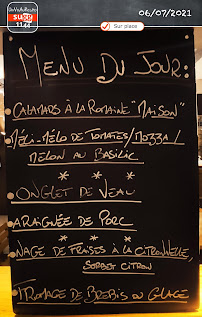 06/07/2021
Sur place
Menu Du Jour:
Calamars à la Romaine "Maison"
Méli-Mélo de Tomates/Mozza/
Melon au Basilic
* * *
Onglet de Veau
Araignée de Porc
* * *
Nage de Fraises à la Citronnelle,
Sorbet Citron
Fromage de Brebis ou Glace